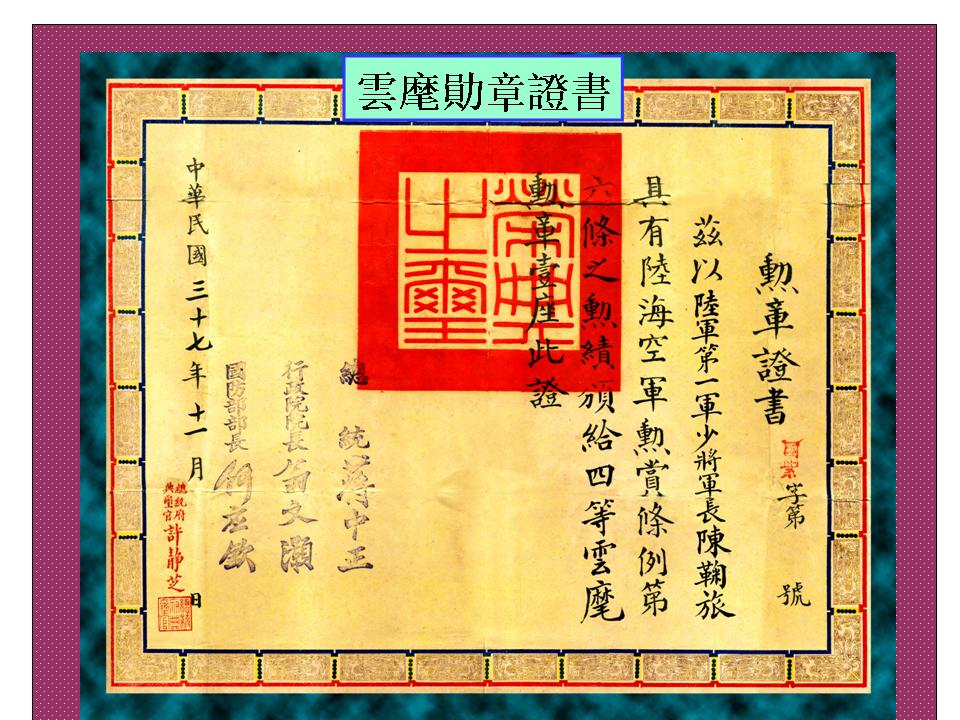 雲麾勛章證書
勳章證書
字第 號
茲以陸軍第一軍少將軍長陳鞠旅
具有陸海空軍勳賞條例第
六條之勳績頒給四等雲麾
勳章壹座此證
榮典之璽
總統 蔣中正
行政院院長 翁文灝
國防部部長 何應欽
中華民國三十七年十一月 日
總統府
典璽官 許靜芝